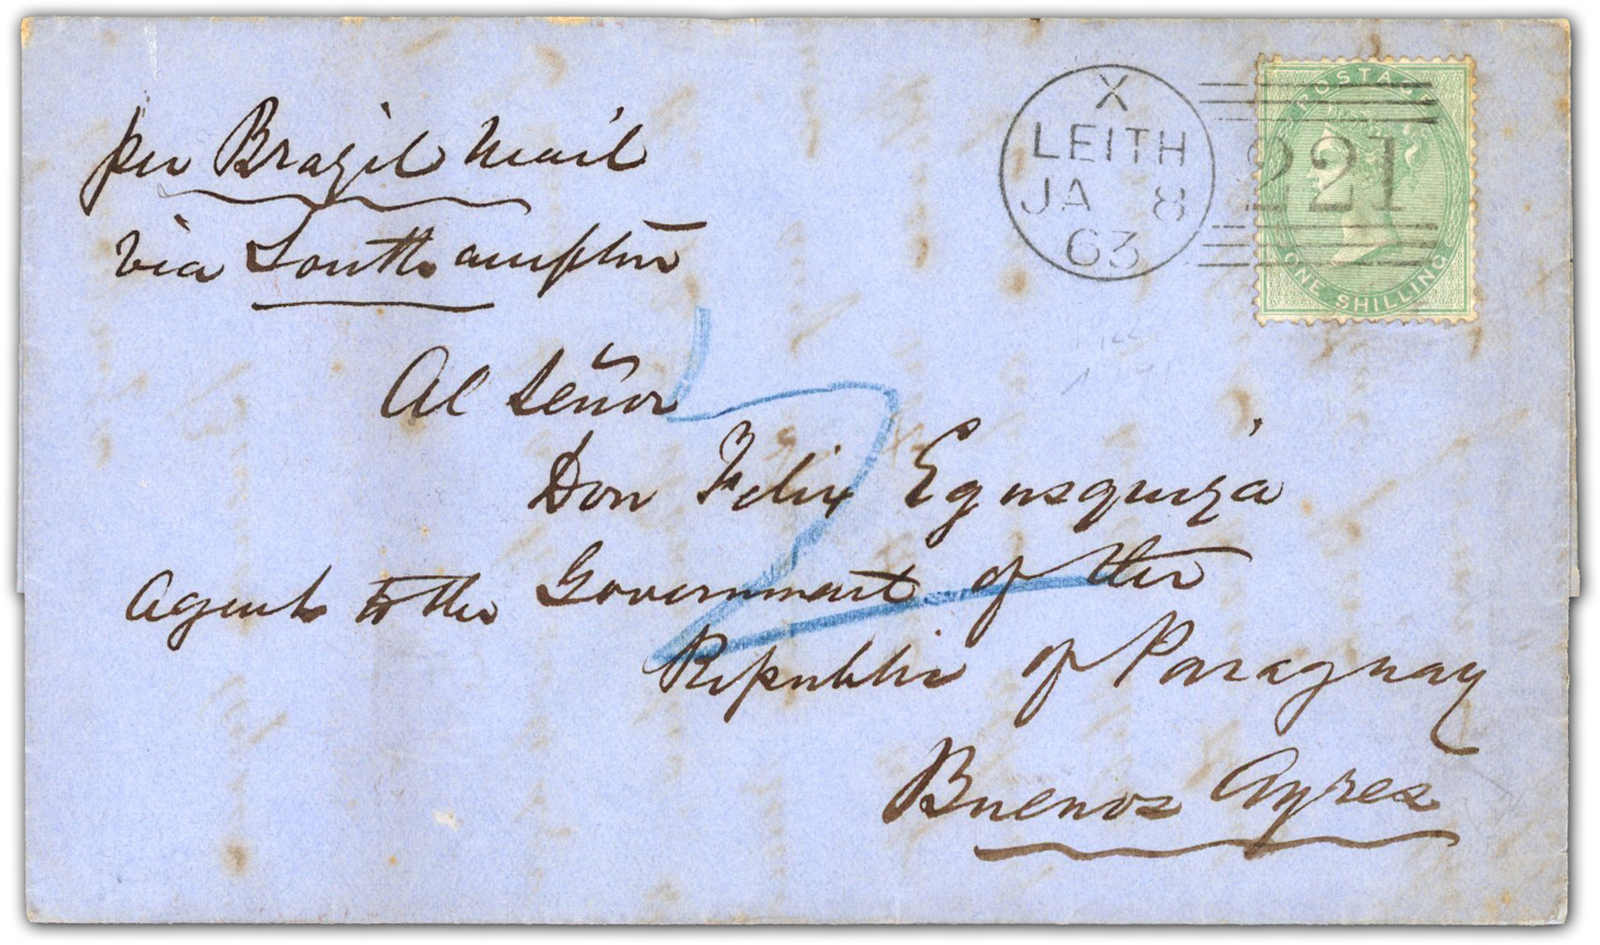 per Brazil Mail
via Southampton
X
LEITH
JA 8
63
221
POSTAGE
ONE SHILLING
Al Señor
Don Felix Egusquiza
Agent to the Government of the
Republic of Paraguay
Buenos Ayres
2